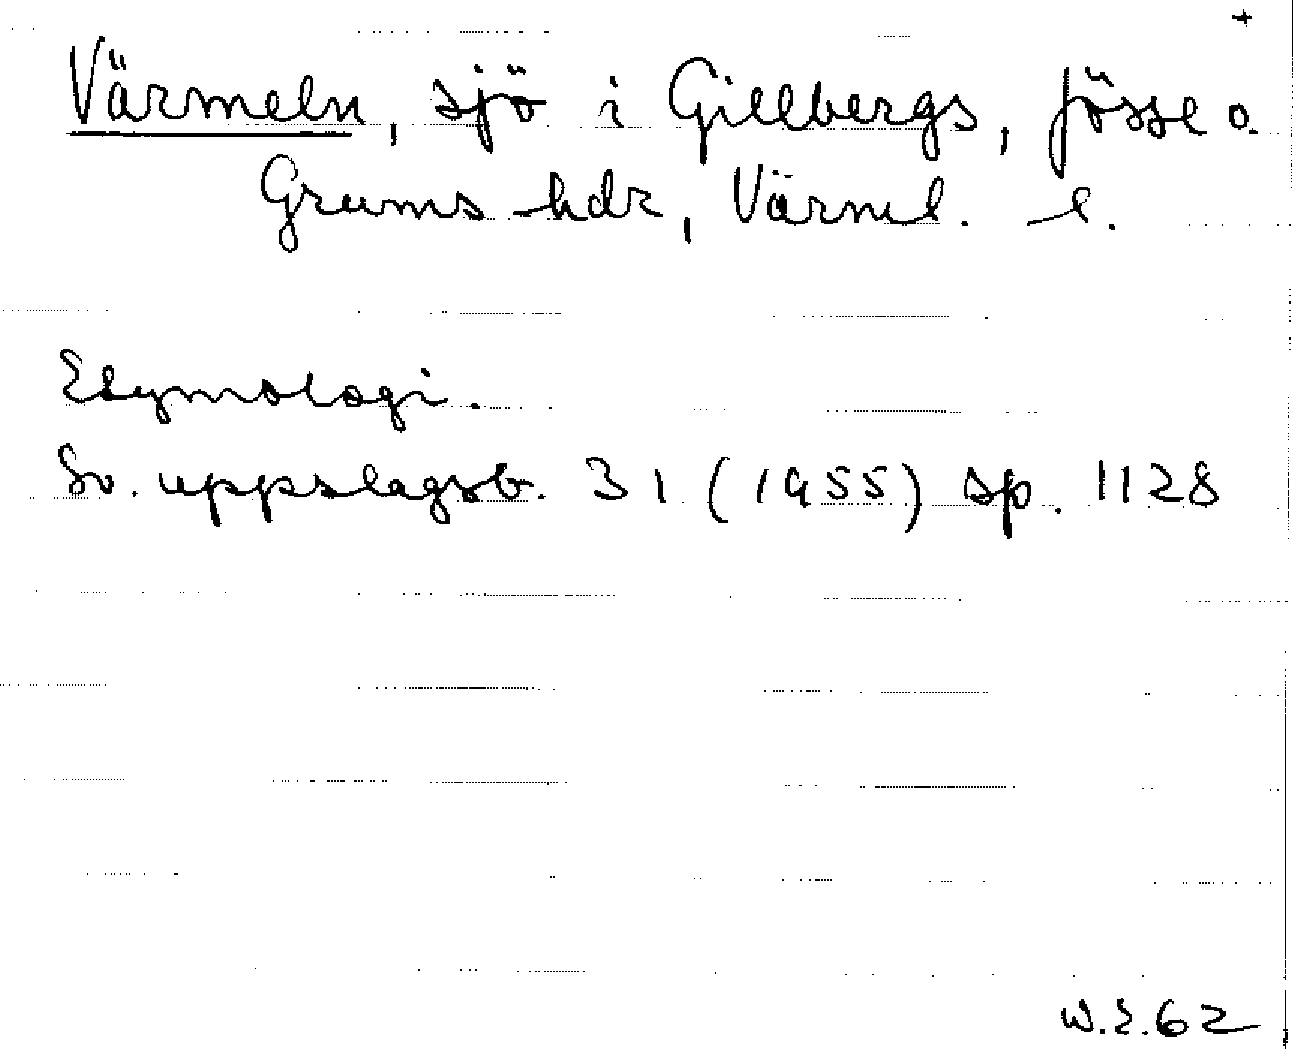 +
Värmeln, sjö i Gillbergs, Jösse o.
Grums hdr, Värml. l.
Etymologi.
Sv. uppslagsb. 31 (1955) sp. 1128
W.E.62